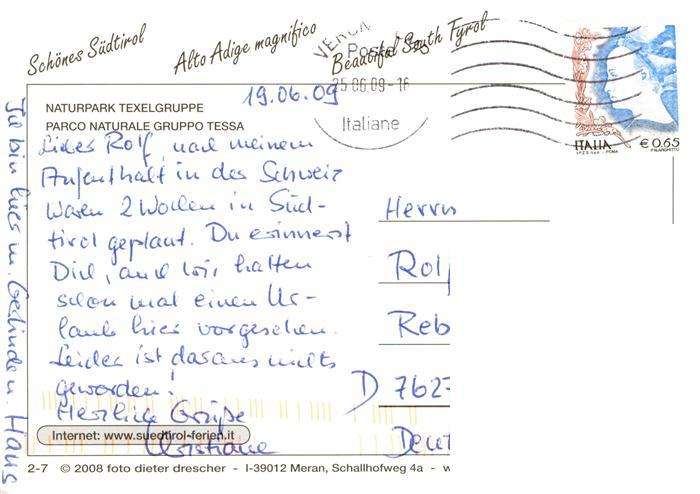 Schönes Südtirol
Alto Adige magnifico
Beautiful South Tyrol
Poste
25 06 09-16
Italiane
ITALIA
€ 0,65
NATURPARK TEXELGRUPPE
PARCO NATURALE GRUPPO TESSA
19.06.09
Lieber Rolf, nach meinem
Aufenthalt in der Schweiz
waren 2 Wochen in Süd-
tirol geplant. Du erinnerst
Dich, auch wir hatten
schon mal einen Ur-
laub hier vorgesehen.
Leider ist daraus nichts
geworden!
Herzlich Grüße
Christiane
Herrn
Rolf
Reb
D 7627
Deut
Internet: www.suedtirol-ferien.it
2-7 © 2008 foto dieter drescher - I-39012 Meran, Schallhofweg 4a - w
Hans